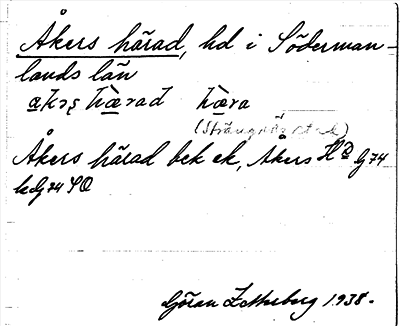 Åkers härad, hd i Söderman-
lands län
häرad hæra
(Strängnäs stad)
Åkers härad bek ek, Åkers H G 74
G 74 SO
Göran Zetterberg 1938.